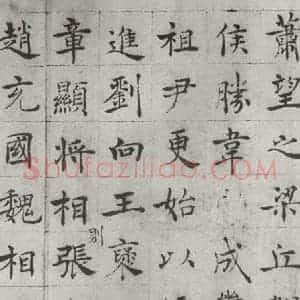 蕭望之梁丘
侯勝韋成
祖尹更始以
進劉向王襃
章顯將相張
趙充國魏相
Shufaziliao.com